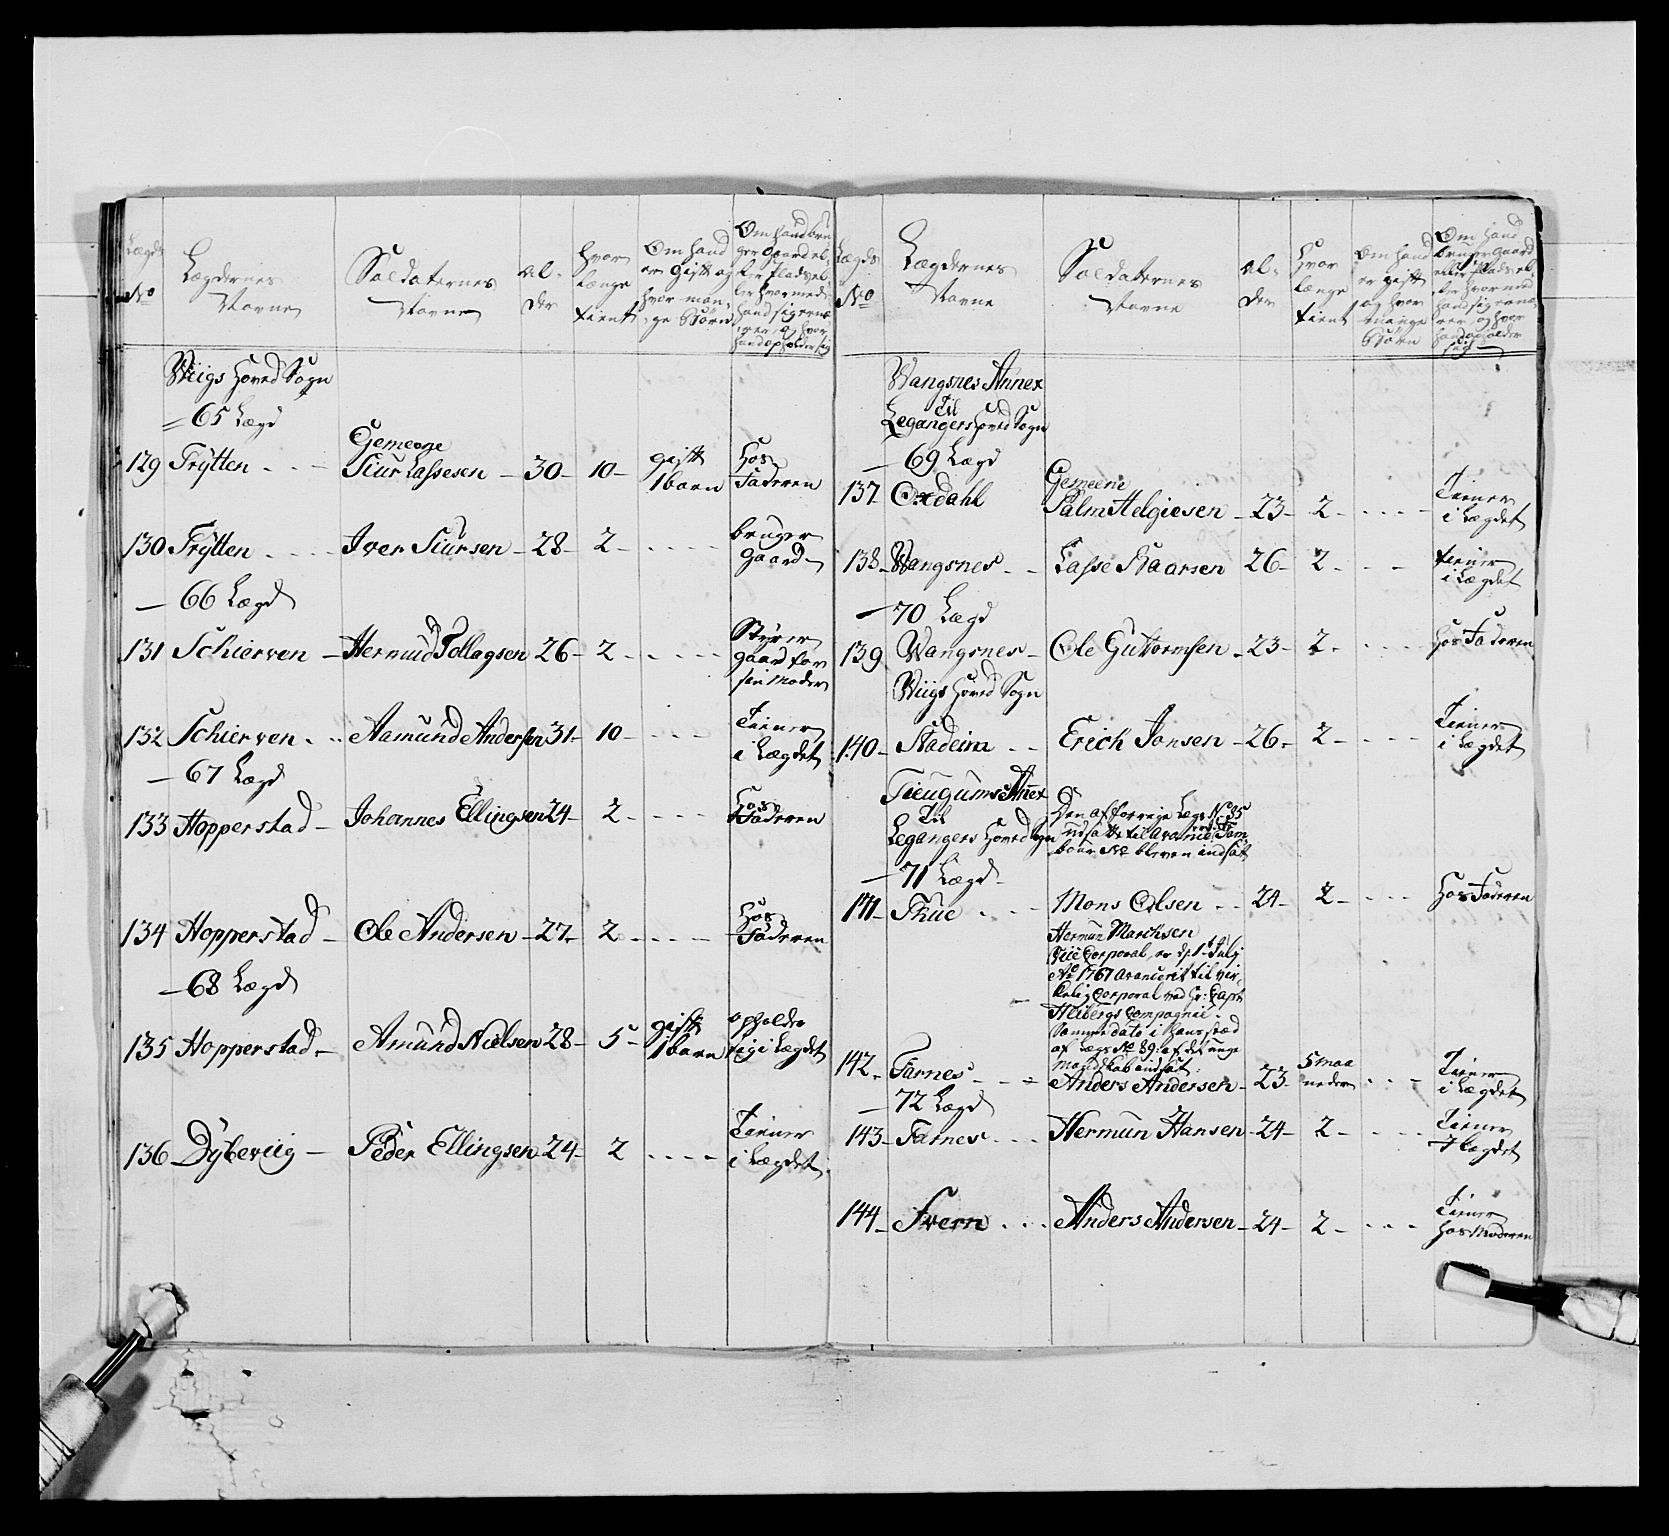 Lægds No
Lægdernes Navne
Soldaternes Navne
Al- der
Hvor længe tient
Om hand er Gift og hvor man- ge Børn
Om hand bru ger Gaard el- ler Plads el- ler hvormed hand sig ernæ rer, og hvor hand opholder sig
Wiigs Hoved Sogn
65 Lægd
Gemeene
129 Frÿtten - - - Siur Lassesen - 30 - 10 - gift 1 barn Hos Faderen
130 Frÿtten - - - - Iver Siursen - 28 - 2 - - - - - bruger gaard -
66 Lægd
131 Schierven - Hermund Tollagsen 26 - 2 - - - - - Stÿrer gaard for sin Moder
132 Schierven - - - Aamund Andersen 31 - 10 - - - - Tiener i Lægdet
67 Lægd
133 Hopperstad - Johannes Ellingsen 24 - 2 - - - - - Hos Faderen
134 Hopperstad - Ole Andersen - 27 - 2 - - - - Hos Faderen
68 Lægd
135 Hopperstad - Amund Nielsen 28 - 5 - gift 1 barn opholder sig i Lægdet
136 Dÿbeviig - Peder Ellingsen 24 - 2 - - - - Tiener i Lægdet
Lægds No
Lægdernes Navne
Soldaternes Navne
Al- der
Hvor længe tient
Om hand er gift og hvor mange Børn
Om hand bruger gaard eller Plads el- ler hvormed hand sig ernæ rer, og hvor hand opholder sig
Wangsnes Annex
til
Legangers Hoved Sogn
69 Lægd
Gemeene
137 Oxdahl Palm Helgiesen - 23 - 2 - - - - - Tiener i Lægdet
138 - Wangsnes - - Lasse Baarsen 26 - 2 - - - tiener i Lægdet
70 Lægd
139 Wangsnes - Ole Gutormsen - 23 - 2 - - - - Hos Faderen
Wiigs Hoved Sogn
140 - Stadeim - - Erich Jonsen - 26 - 2 - - - - Tiener i Lægdet
Tieugums Annex
til
Legangers Hoved Sogn
Den af forrige Lægs No 35
udsatte til Avancerede Tam-
bour bleven indsat
71 Lægd -
141 - Thue - - - Mons Olsen - - 24 - 2 - - - - Hos Faderen
Hermun Marchsen
Vice Corporal, er d: 1te Julj
Ao 1767 Avancerit til vir-
kelig Corporal ved Hr: Capt
Heibergs Compagnie.
Samme dato i Hans stæd
af Lægs No 89: af det unge
Mandskab indsat:
142 - Farnes - - - Anders Andersen - 23 - 5 maa neder - - - Tiener i Lægdet
72 Lægd
143 - Farnes - - - Hermun Hansen - 24 - 2 - - - - Tiener i Lægdet
144 - Fvern - - - Anders Andersen - 24 - 2 - - - - Tiener Hos Moderen